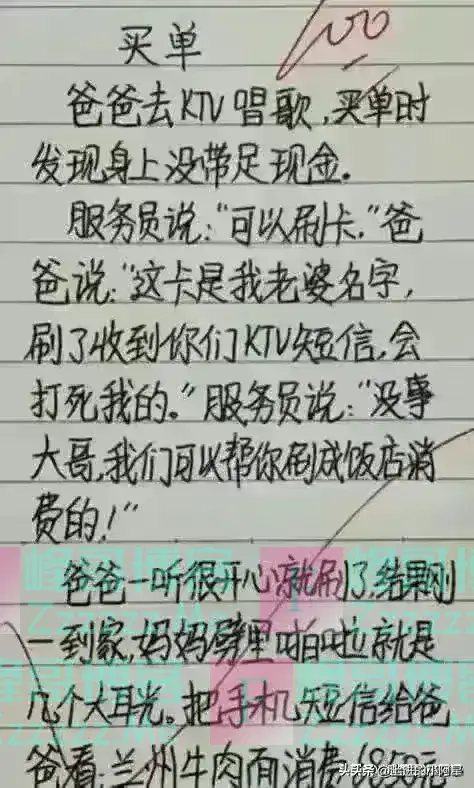 买单
100
爸爸去KTV唱歌,买单时
发现身上没带足现金.
服务员说:"可以刷卡."爸
爸说:"这卡是我老婆名字,
刷了收到你们KTV短信,会
打死我的."服务员说:"没事
大哥,我们可以帮你刷成饭店消
费的!"
爸爸一听很开心就刷了,结果刚
一到家,妈妈劈里啪啦就是
几个大耳光。把手机短信给爸
爸看:兰州牛肉面消费1850元
峰哥博客
Zzzzzz
头条